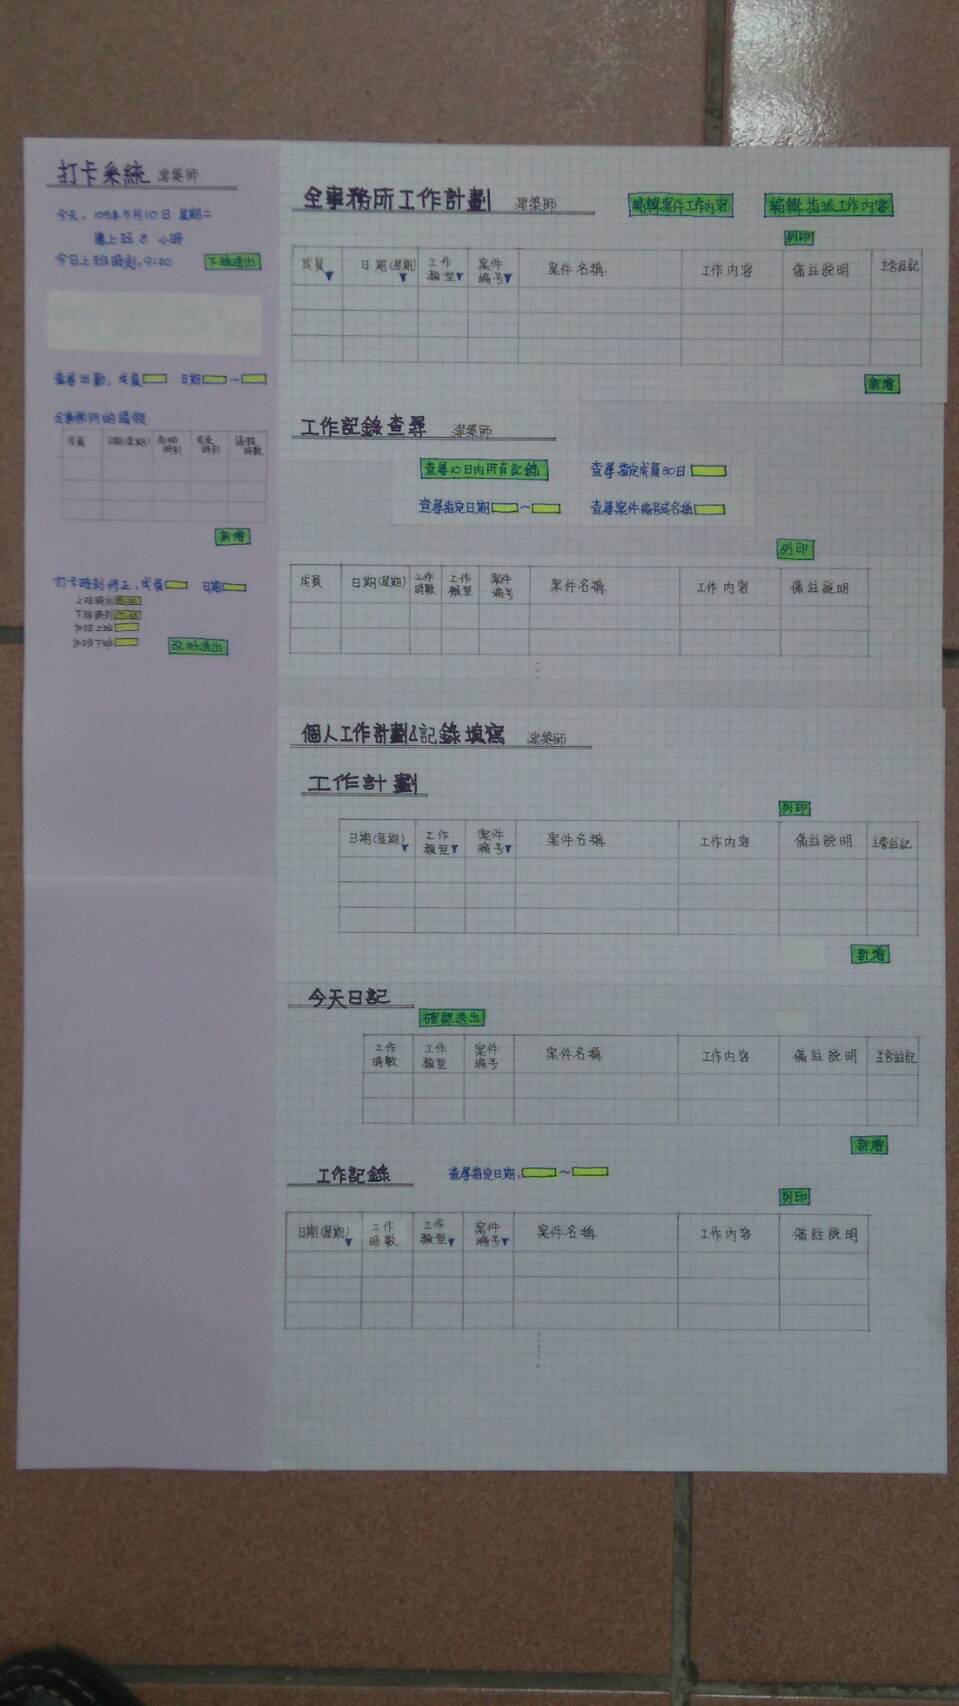 打卡系統 建築師
今天，105年5月10日 星期二
應上班 8 小時
今日上班時刻，9:20 下班送出
查尋出勤，成員 日期 ～
全事務所的請假
成員 日期(星期) 起始時刻 結束時刻 請假時數
新增
打卡時刻修正，成員 日期
上班時刻
下班時刻
送出
全事務所工作計劃 建築師 編輯案件工作內容 編輯指派工作內容
列印
成員 日期(星期) 工作類型 案件編号 案件名稱 工作內容 備註說明 主管註記
新增
工作記錄查尋 建築師
查尋10日內所有記錄 查尋指定成員30日
查尋指定日期 ～ 查尋案件編号或名稱
列印
成員 日期(星期) 工作時數 工作類型 案件編号 案件名稱 工作內容 備註說明
個人工作計劃&記錄填寫 建築師
工作計劃
列印
日期(星期) 工作類型 案件編号 案件名稱 工作內容 備註說明 主管註記
新增
今天日記
確認送出
工作時數 工作類型 案件編号 案件名稱 工作內容 備註說明 主管註記
新增
工作記錄 查尋指定日期， ～
列印
日期(星期) 工作時數 工作類型 案件編号 案件名稱 工作內容 備註說明